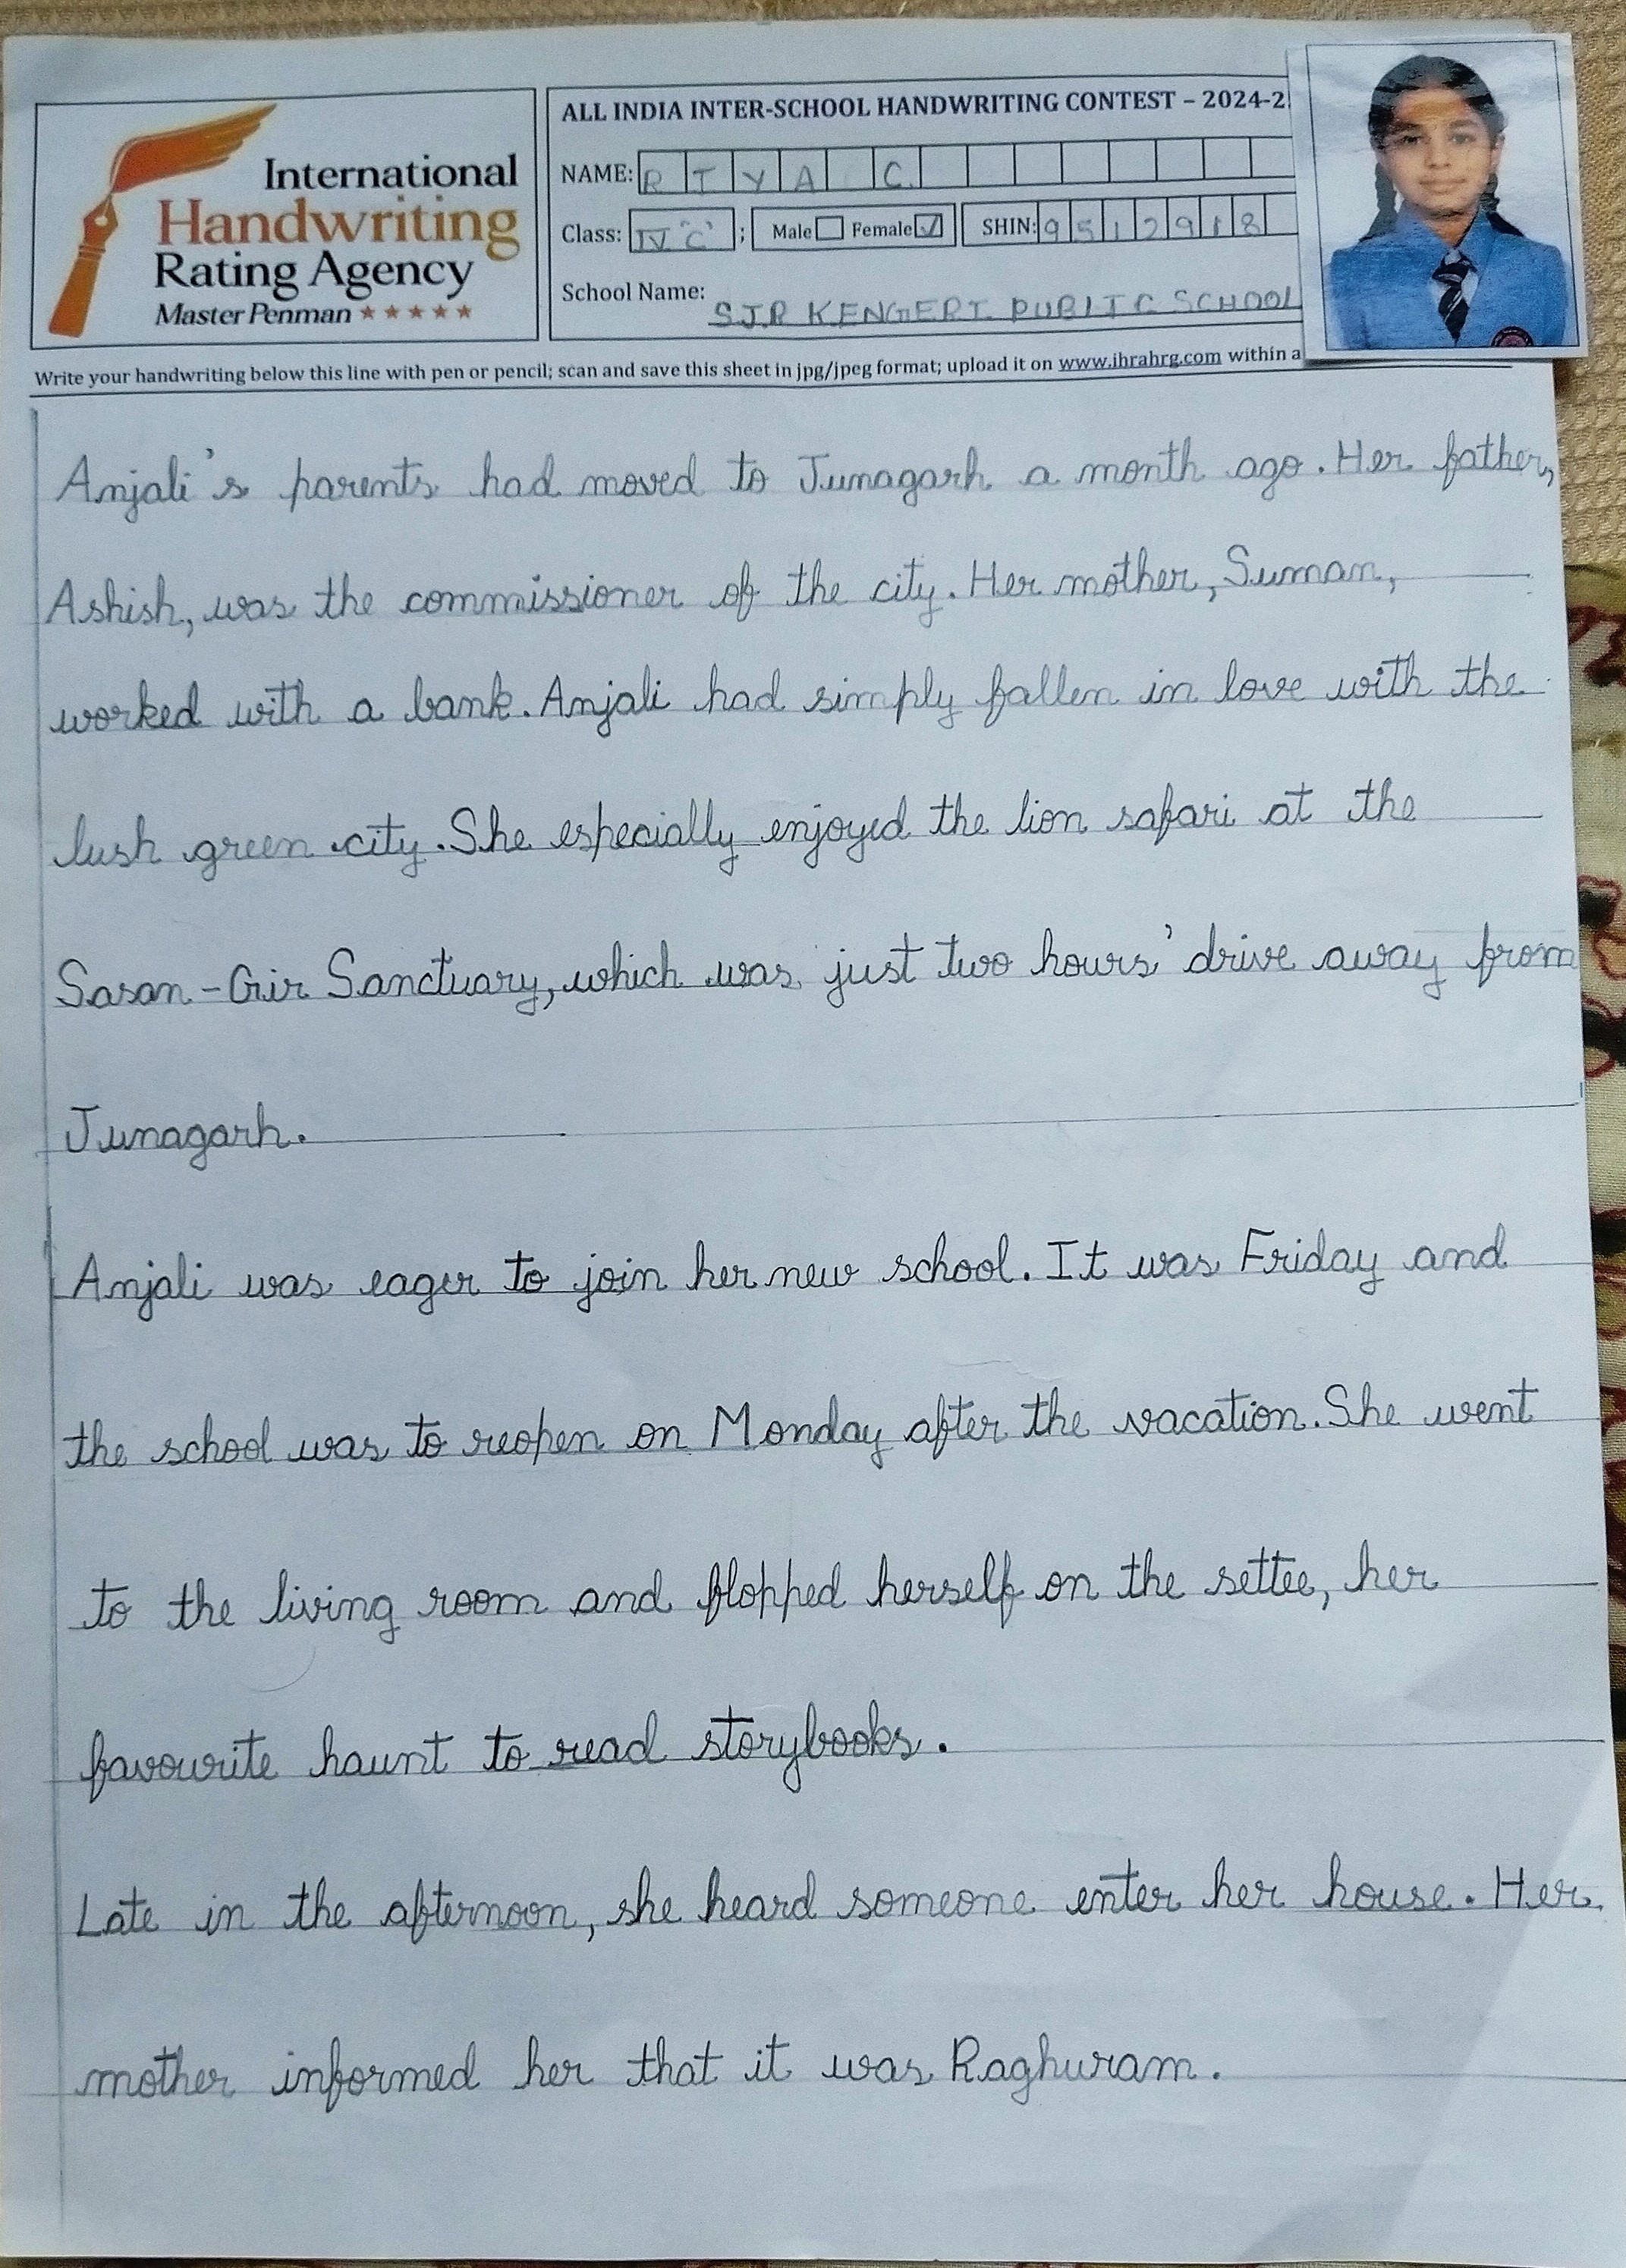 International
Handwriting
Rating Agency
Master Penman
ALL INDIA INTER-SCHOOL HANDWRITING CONTEST – 2024-2
NAME: RIYA C.
Class: IV 'C' ; Male Female ✓ SHIN: 9512918
School Name: SJR KENGERI PUBLIC SCHOOL
Write your handwriting below this line with pen or pencil; scan and save this sheet in jpg/jpeg format; upload it on www.ihrahrg.com within a
Anjali's parents had moved to Junagarh a month ago. Her father,
Ashish, was the commissioner of the city. Her mother, Suman,
worked with a bank. Anjali had simply fallen in love with the
lush green city. She especially enjoyed the lion safari at the
Sasan-Gir Sanctuary, which was just two hours' drive away from
Junagarh.
Anjali was eager to join her new school. It was Friday and
the school was to reopen on Monday after the vacation. She went
to the living room and flopped herself on the settee, her
favourite haunt to read storybooks.
Late in the afternoon, she heard someone enter her house. Her
mother informed her that it was Raghuram.